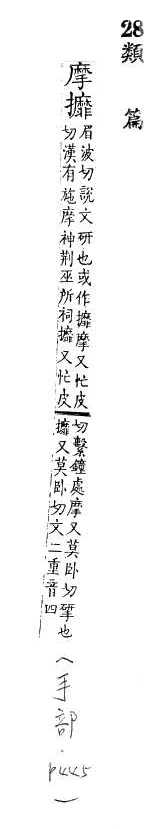 28 類篇
摩攠
眉波切說文研也或作攠摩又忙皮
切漢有施摩神荆巫所祠攠又忙皮
切繫鐘處摩又莫臥切揅也
攠又莫臥切文二重音四
(手部.p445)